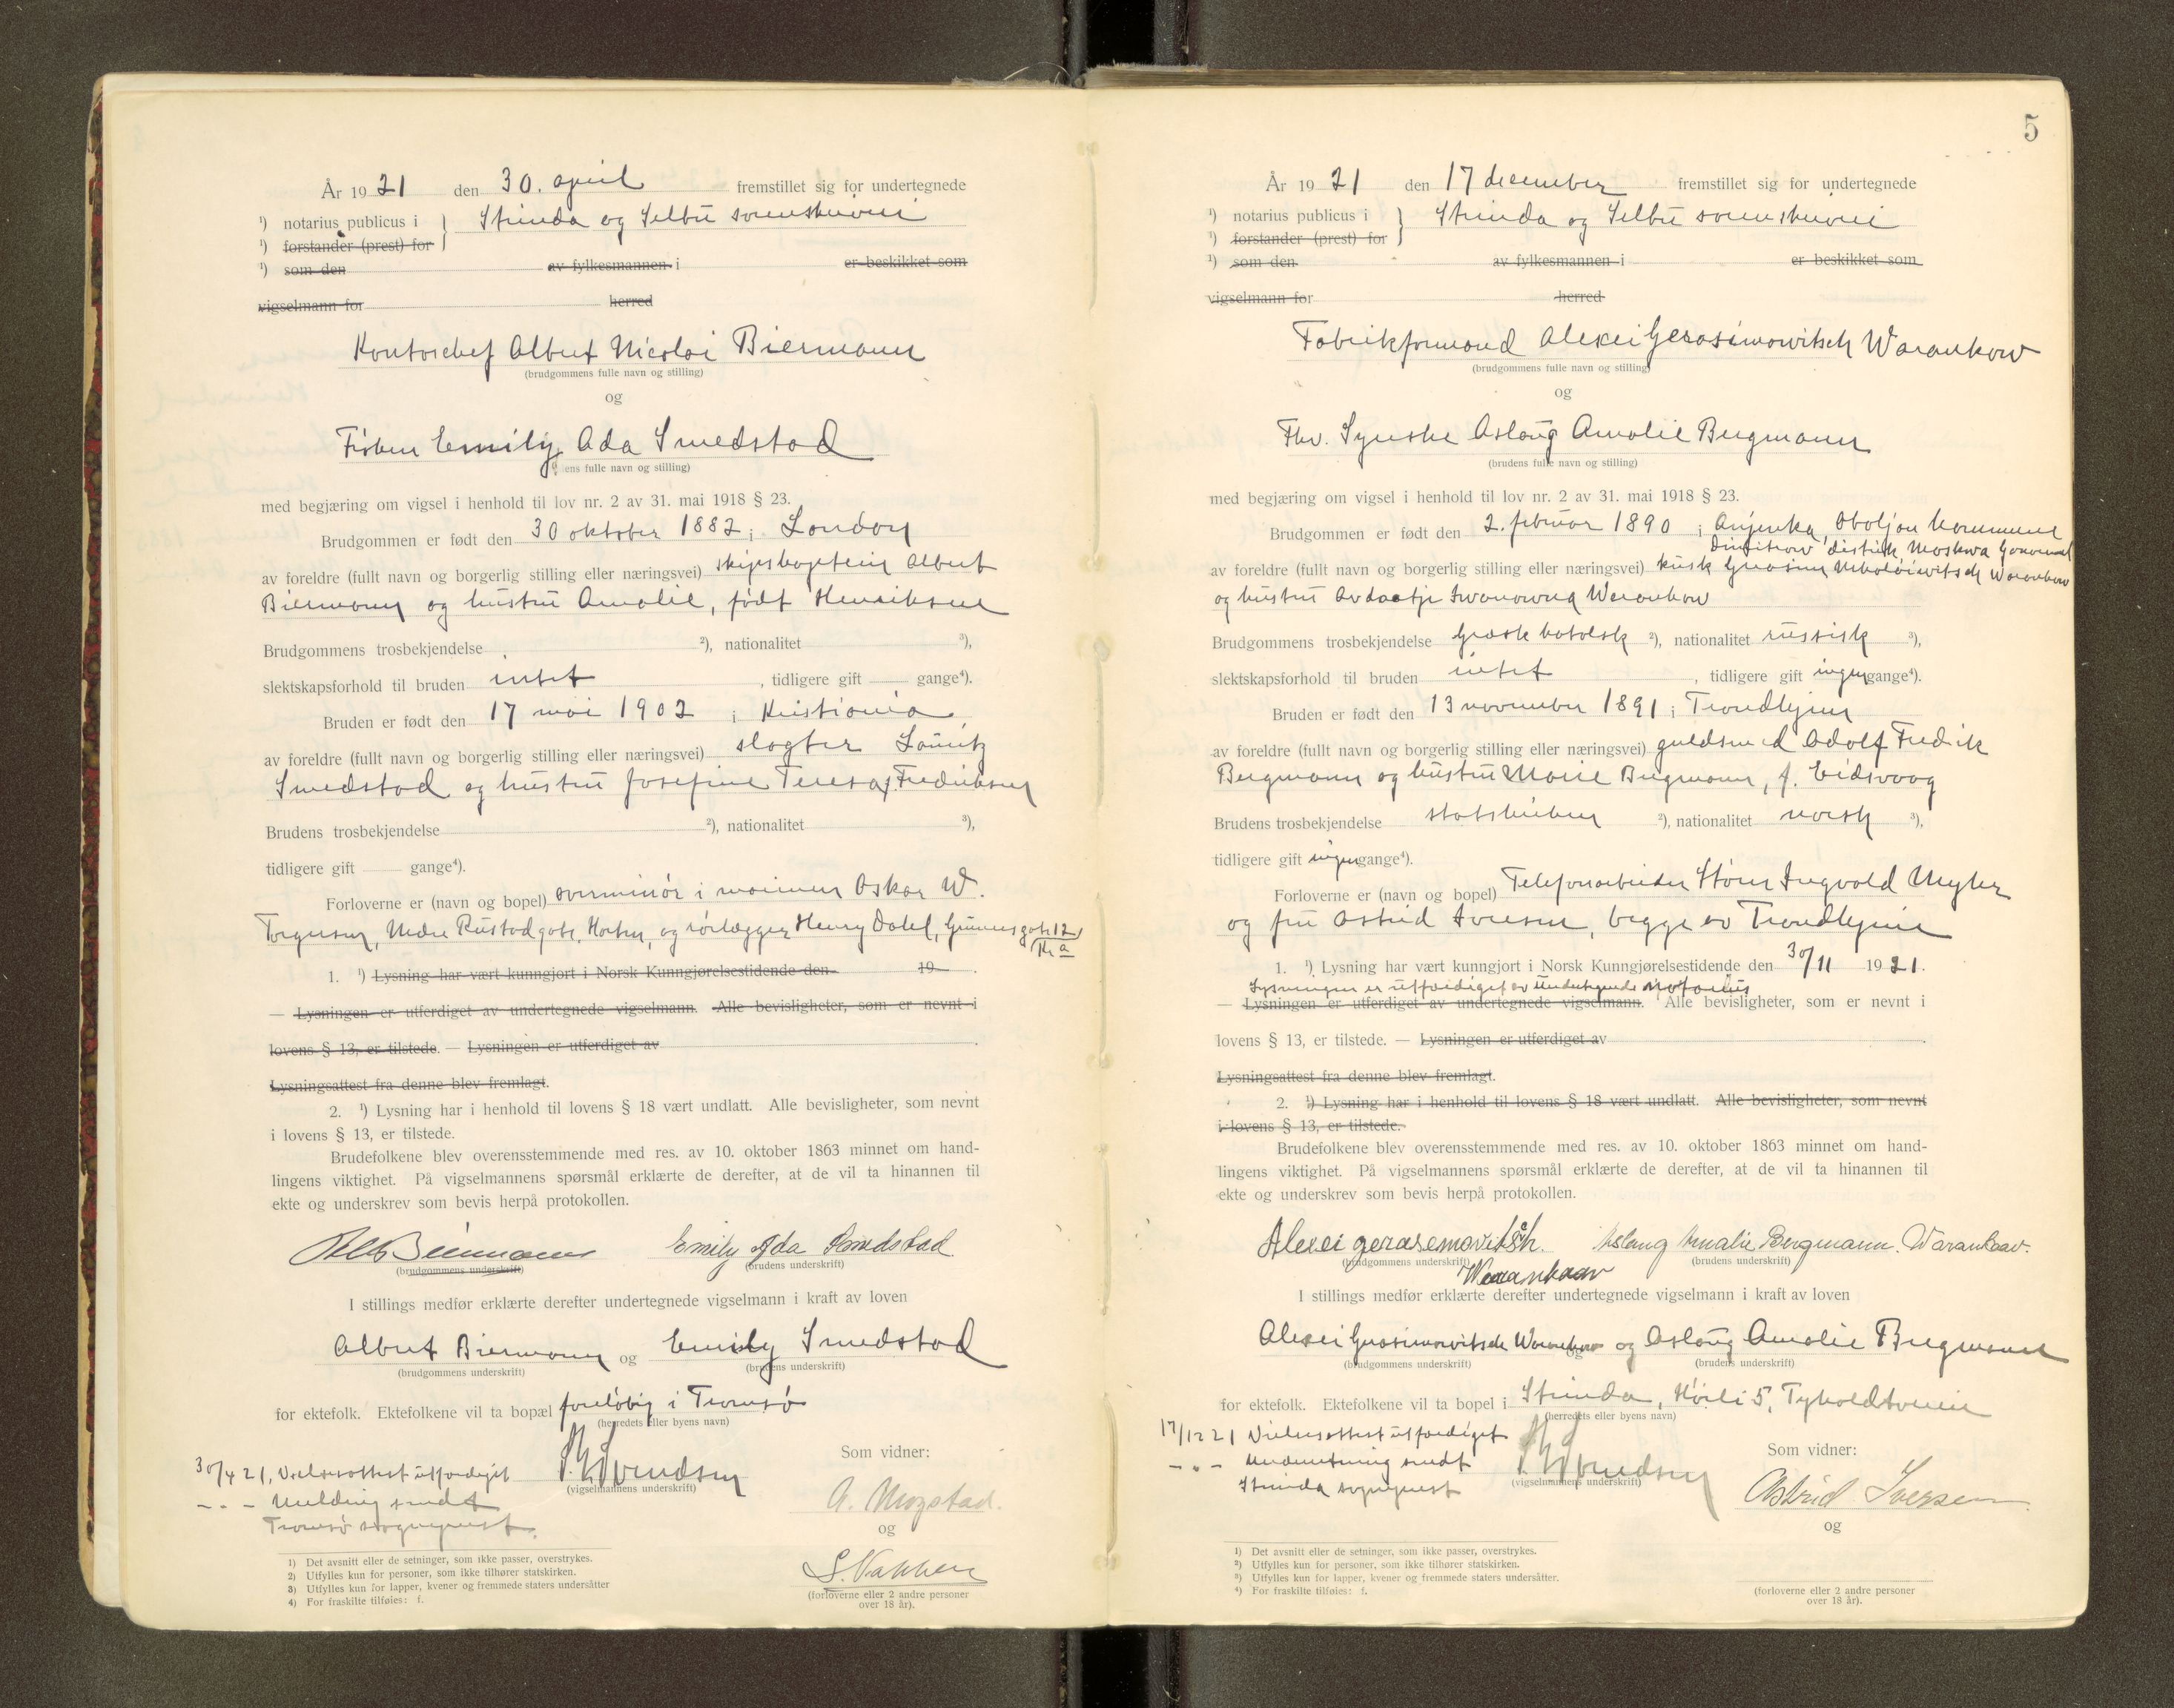 År 19 21 den 30. april fremstillet sig for undertegnede
¹) notarius publicus i } Strinda og Selbu sorenskriveri
¹) forstander (prest) for
¹) som den av fylkesmannen i er beskikket som
vigselmann for herred
Kontorchef Albert Nicolai Biermann
(brudgommens fulle navn og stilling)
og
Frøken Emily Ada Smedstad
ens fulle navn og stilling)
med begjæring om vigsel i henhold til lov nr. 2 av 31. mai 1918 § 23.
Brudgommen er født den 30 oktober 1882 i London
av foreldre (fullt navn og borgerlig stilling eller næringsvei) skipskaptein Albert
Biermann og hustru Amalie, født Henriksen
Brudgommens trosbekjendelse ²), nationalitet ³),
slektskapsforhold til bruden intet, tidligere gift gange⁴).
Bruden er født den 17 mai 1902 i Kristiania,
av foreldre (fullt navn og borgerlig stilling eller næringsvei) slagter Lauritz
Smedstad og hustru Josefine Teresa f. Fredriksen
Brudens trosbekjendelse ²), nationalitet ³),
tidligere gift gange⁴).
Forloverne er (navn og bopel) overminør i marinen Oskar W.
Torgersen, Nedre Rustadgate, Horten, og rørlægger Henry Dahl, Grünersgate 12
Kr.a
1. ¹) Lysning har vært kunngjort i Norsk Kunngjørelsestidende den 19 .
— Lysningen er utferdiget av undertegnede vigselmann. Alle bevisligheter, som er nevnt i
lovens § 13, er tilstede. — Lysningen er utferdiget av .
Lysningsattest fra denne blev fremlagt.
2. ¹) Lysning har i henhold til lovens § 18 vært undlatt. Alle bevisligheter, som nevnt
i lovens § 13, er tilstede.
Brudefolkene blev overensstemmende med res. av 10. oktober 1863 minnet om hand-
lingens viktighet. På vigselmannens spørsmål erklærte de derefter, at de vil ta hinannen til
ekte og underskrev som bevis herpå protokollen.
Biermann Emily Ada Smedstad.
(brudgommens underskrift) (brudens underskrift)
I stillings medfør erklærte derefter undertegnede vigselmann i kraft av loven
Albert Biermann og Emily Smedstad
(brudgommens underskrift) (brudens underskrift)
for ektefolk. Ektefolkene vil ta bopæl foreløbig i Tromsø
(herredets eller byens navn)
30/4 21, Vielsesattest utfærdiget
(vigselmannens underskrift)
Som vidner:
– " – Melding sendt
Tromsø sogneprest.
A. Mogstad.
og
(forloverne eller 2 andre personer
over 18 år).
1) Det avsnitt eller de setninger, som ikke passer, overstrykes.
2) Utfylles kun for personer, som ikke tilhører statskirken.
3) Utfylles kun for lapper, kvener og fremmede staters undersåtter
4) For fraskilte tilføies: f.
5
År 19 21 den 17 december fremstillet sig for undertegnede
¹) notarius publicus i } Strinda og Selbu sorenskriveri
¹) forstander (prest) for
¹) som den av fylkesmannen i er beskikket som
vigselmann for herred
Fabrikformand Alexei Gerasimowitsch Warankow
(brudgommens fulle navn og stilling)
og
Fhv. Syerske Aslaug Amalie Bergmann
(brudens fulle navn og stilling)
med begjæring om vigsel i henhold til lov nr. 2 av 31. mai 1918 § 23.
Brudgommen er født den 2. februar 1890 i Anjenka, Oboljon kommune
Dimitrow distrikt, Moskwa
av foreldre (fullt navn og borgerlig stilling eller næringsvei) kusk Gerasim Nikolaiewitsch Warankow
og hustru Avdaotje Iwanowna Warankow
Brudgommens trosbekjendelse græsk katolsk ²), nationalitet russisk ³),
slektskapsforhold til bruden intet, tidligere gift ingen gange⁴).
Bruden er født den 13 november 1891 i Trondhjem
av foreldre (fullt navn og borgerlig stilling eller næringsvei) guldsmed Adolf Fredrik
Bergmann og hustru Marie Bergmann, f. Eidsvaag
Brudens trosbekjendelse statskirken ²), nationalitet norsk ³),
tidligere gift ingen gange⁴).
Forloverne er (navn og bopel) Telefonarbeider Ingvald
og fru Astrid Iversen, begge av Trondhjem
1. ¹) Lysning har vært kunngjort i Norsk Kunngjørelsestidende den 30/11 1921.
Lysningen er utfærdiget av undertegnede notarius
— Lysningen er utferdiget av undertegnede vigselmann. Alle bevisligheter, som er nevnt i
lovens § 13, er tilstede. — Lysningen er utferdiget av .
Lysningsattest fra denne blev fremlagt.
2. ¹) Lysning har i henhold til lovens § 18 vært undlatt. Alle bevisligheter, som nevnt
i lovens § 13, er tilstede.
Brudefolkene blev overensstemmende med res. av 10. oktober 1863 minnet om hand-
lingens viktighet. På vigselmannens spørsmål erklærte de derefter, at de vil ta hinannen til
ekte og underskrev som bevis herpå protokollen.
Alexei gerasemovitsh. Aslaug Amalie Bergmann. Warankaav.
(brudgommens underskrift) (brudens underskrift)
Warankaav
I stillings medfør erklærte derefter undertegnede vigselmann i kraft av loven
Alexei Gerasimowitsch Warankow og Aslaug Amalie Bergmann
(brudgommens underskrift) (brudens underskrift)
for ektefolk. Ektefolkene vil ta bopel i Strinda, Høili 5, Tyholdtveien
(herredets eller byens navn)
17/12 21 Vielsesattest utfærdiget
– " – Underretning sendt
(vigselmannens underskrift)
Strinda sogneprest
Som vidner:
Astrid Iversen
og
(forloverne eller 2 andre personer
over 18 år).
¹) Det avsnitt eller de setninger, som ikke passer, overstrykes.
²) Utfylles kun for personer, som ikke tilhører statskirken.
³) Utfylles kun for lapper, kvener og fremmede staters undersåtter.
⁴) For fraskilte tilføies: f.